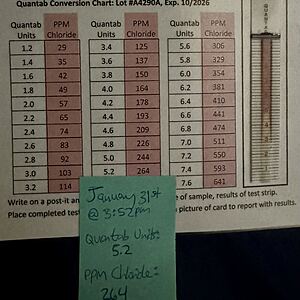 Quantab Conversion Chart: Lot #A4290A, Exp. 10/2026
Quantab Units PPM Chloride Quantab Units PPM Chloride Quantab Units PPM Chloride
1.2 29 3.4 125 5.6 306
1.4 35 3.6 137 5.8 329
1.6 42 3.8 150 6.0 354
1.8 50 4.0 164 6.2 381
2.0 57 4.2 178 6.4 410
2.2 65 4.4 193 6.6 441
2.4 74 4.6 209 6.8 474
2.6 83 4.8 226 7.0 511
2.8 92 5.0 244 7.2 550
3.0 103 5.2 264 7.4 593
3.2 114 7.6 641
Write on a post-it of sample, results of test strip.
Place completed test picture of card to report with results.
January 31st
@ 3:52pm
Quantab Units:
5.2
PPM Chloride:
264